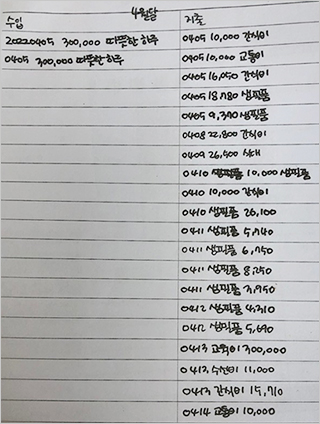 4월달
수입
20220405 300,000 따뜻한 하루
0405 300,000 따뜻한하루
지출
0405 10,000 간식비
0905 10,000 교통비
0405 16,050 간식비
0405 18,780 생필품
0405 9,370 생필품
0408 22,800 간식비
0409 26,500
0410 생필품 10,000 생필품
0410 10,000 간식비
0410 생필품 26,100
0411 생필품 5,740
0411 생필품 6,750
0411 생필품 8,250
0411 생필품 3,950
0412 생필품 4,310
0412 생필품 5,690
0413 교육비 300,000
0413 수선비 11,000
0413 간식비 15,710
0414 교통비 10,000